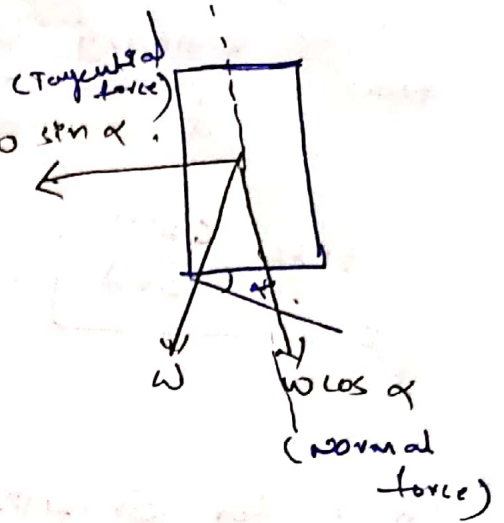 (Tangential
force)
ω sin α
α
ω
ω cos α
(Normal
force)